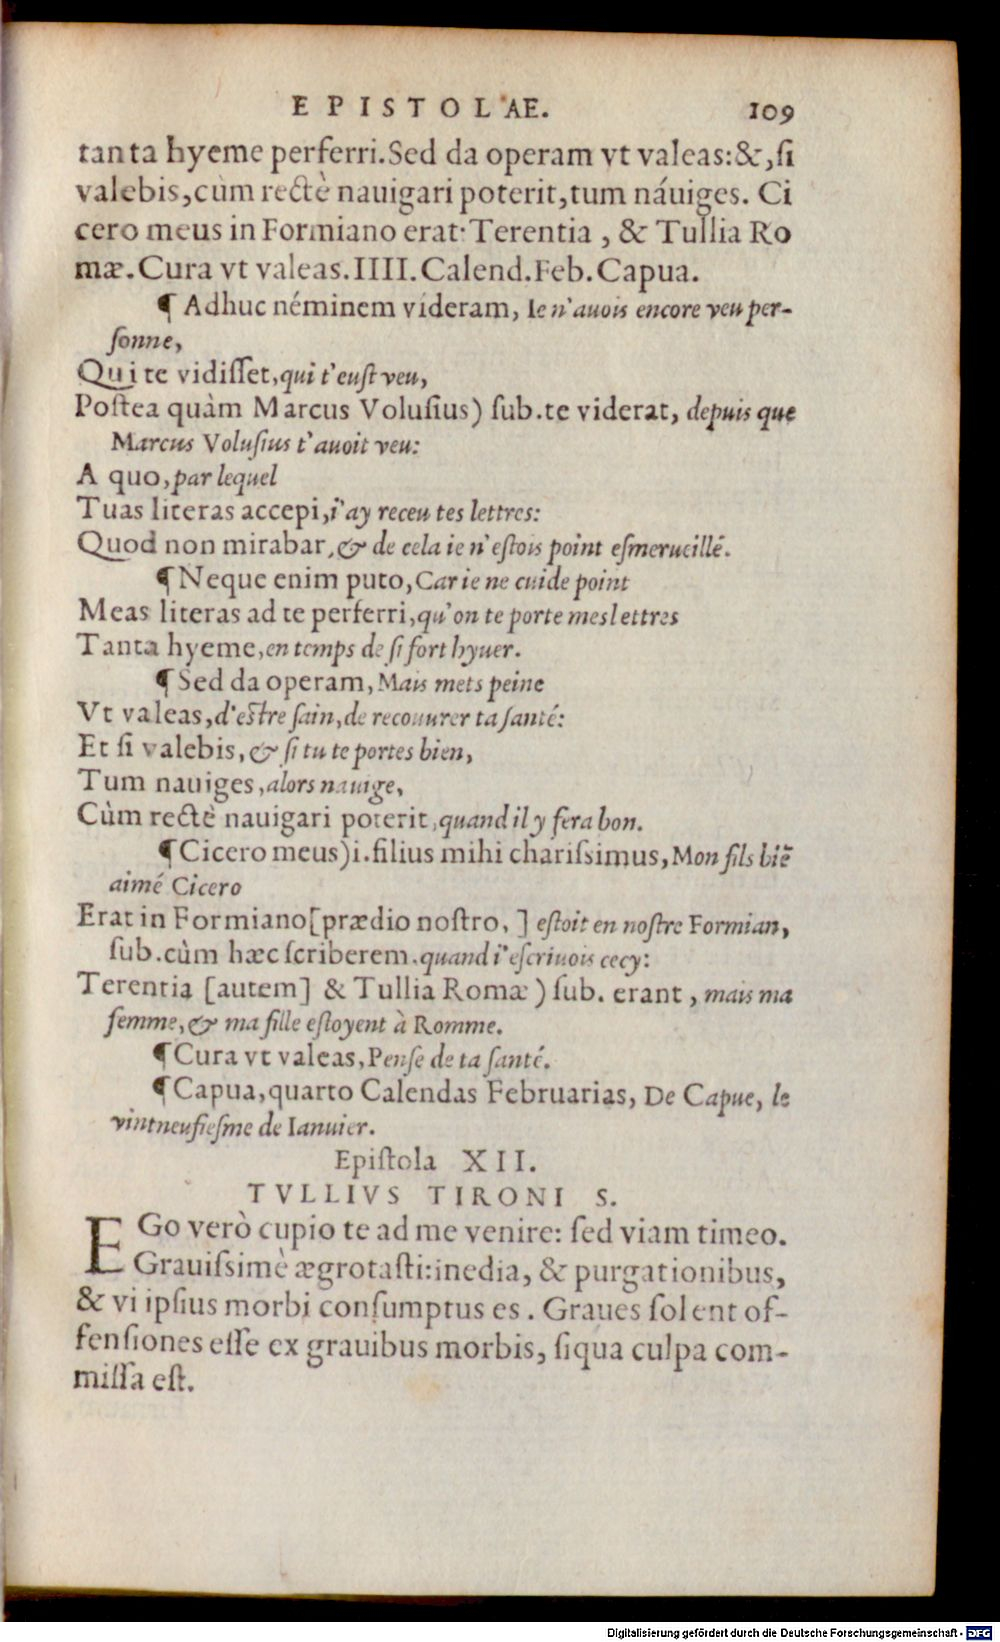 EPISTOLAE. 109
tanta hyeme perferri. Sed da operam vt valeas: &, ſi
valebis, cùm rectè nauigari poterit, tum náuiges. Ci
cero meus in Formiano erat: Terentia, & Tullia Ro
mæ. Cura vt valeas. IIII. Calend. Feb. Capua.
¶ Adhuc néminem víderam, Ie n'auois encore veu per-
ſonne,
Qui te vidiſſet, qui t'euſt veu,
Poſtea quàm Marcus Voluſius) ſub. te viderat, depuis que
Marcus Voluſius t'auoit veu:
A quo, par lequel
Tuas literas accepi, i'ay receu tes lettres:
Quod non mirabar, & de cela ie n'eſtois point eſmerueillé.
¶ Neque enim puto, Car ie ne cuide point
Meas literas ad te perferri, qu'on te porte mes lettres
Tanta hyeme, en temps de ſi fort hyuer.
¶ Sed da operam, Mais mets peine
Vt valeas, d'eſtre ſain, de recouurer ta ſanté:
Et ſi valebis, & ſi tu te portes bien,
Tum nauiges, alors nauige,
Cùm rectè nauigari poterit, quand il y fera bon.
¶ Cicero meus) i. filius mihi chariſsimus, Mon fils biē
aimé Cicero
Erat in Formiano [prædio noſtro,] eſtoit en noſtre Formian,
ſub. cùm hæc ſcriberem, quand i'eſcriuois cecy:
Terentia [autem] & Tullia Romæ) ſub. erant, mais ma
femme, & ma fille eſtoyent à Romme.
¶ Cura vt valeas, Penſe de ta ſanté.
¶ Capua, quarto Calendas Februarias, De Capue, le
vintneufieſme de Ianuier.
Epiſtola XII.
TVLLIVS TIRONI S.
EGo verò cupio te ad me venire: ſed viam timeo.
Grauiſsimè ægrotaſti: inedia, & purgationibus,
& vi ipſius morbi conſumptus es. Graues ſolent of-
fenſiones eſſe ex grauibus morbis, ſiqua culpa com-
miſſa eſt.
Digitalisierung gefördert durch die Deutsche Forschungsgemeinschaft - DFG